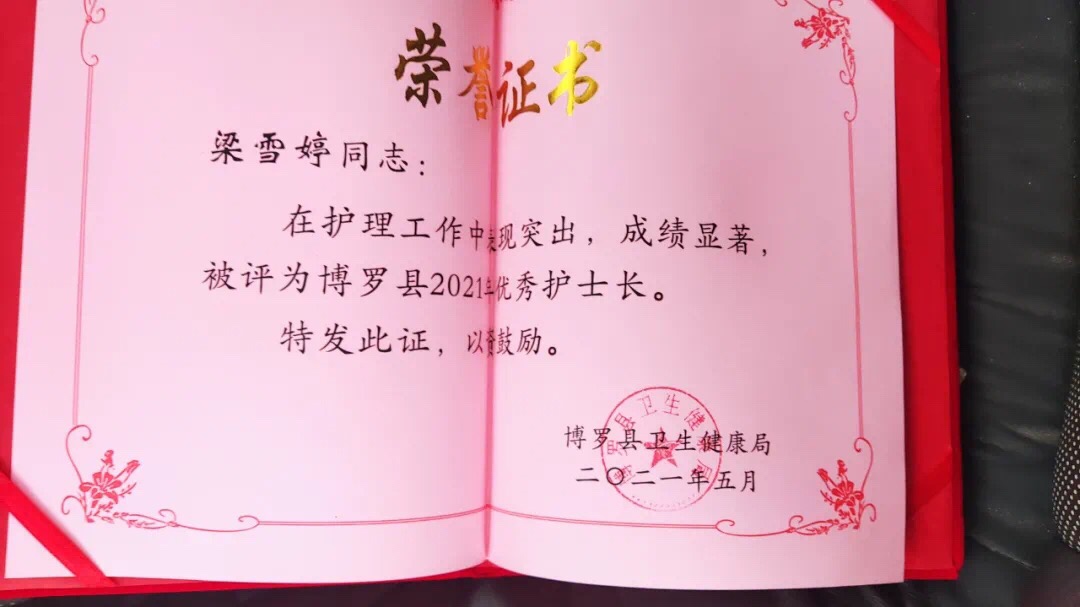 荣誉证书
梁雪婷同志：
在护理工作中表现突出，成绩显著，
被评为博罗县2021年优秀护士长。
特发此证，以资鼓励。
博罗县卫生健康局
二〇二一年五月
博罗县卫生健康局